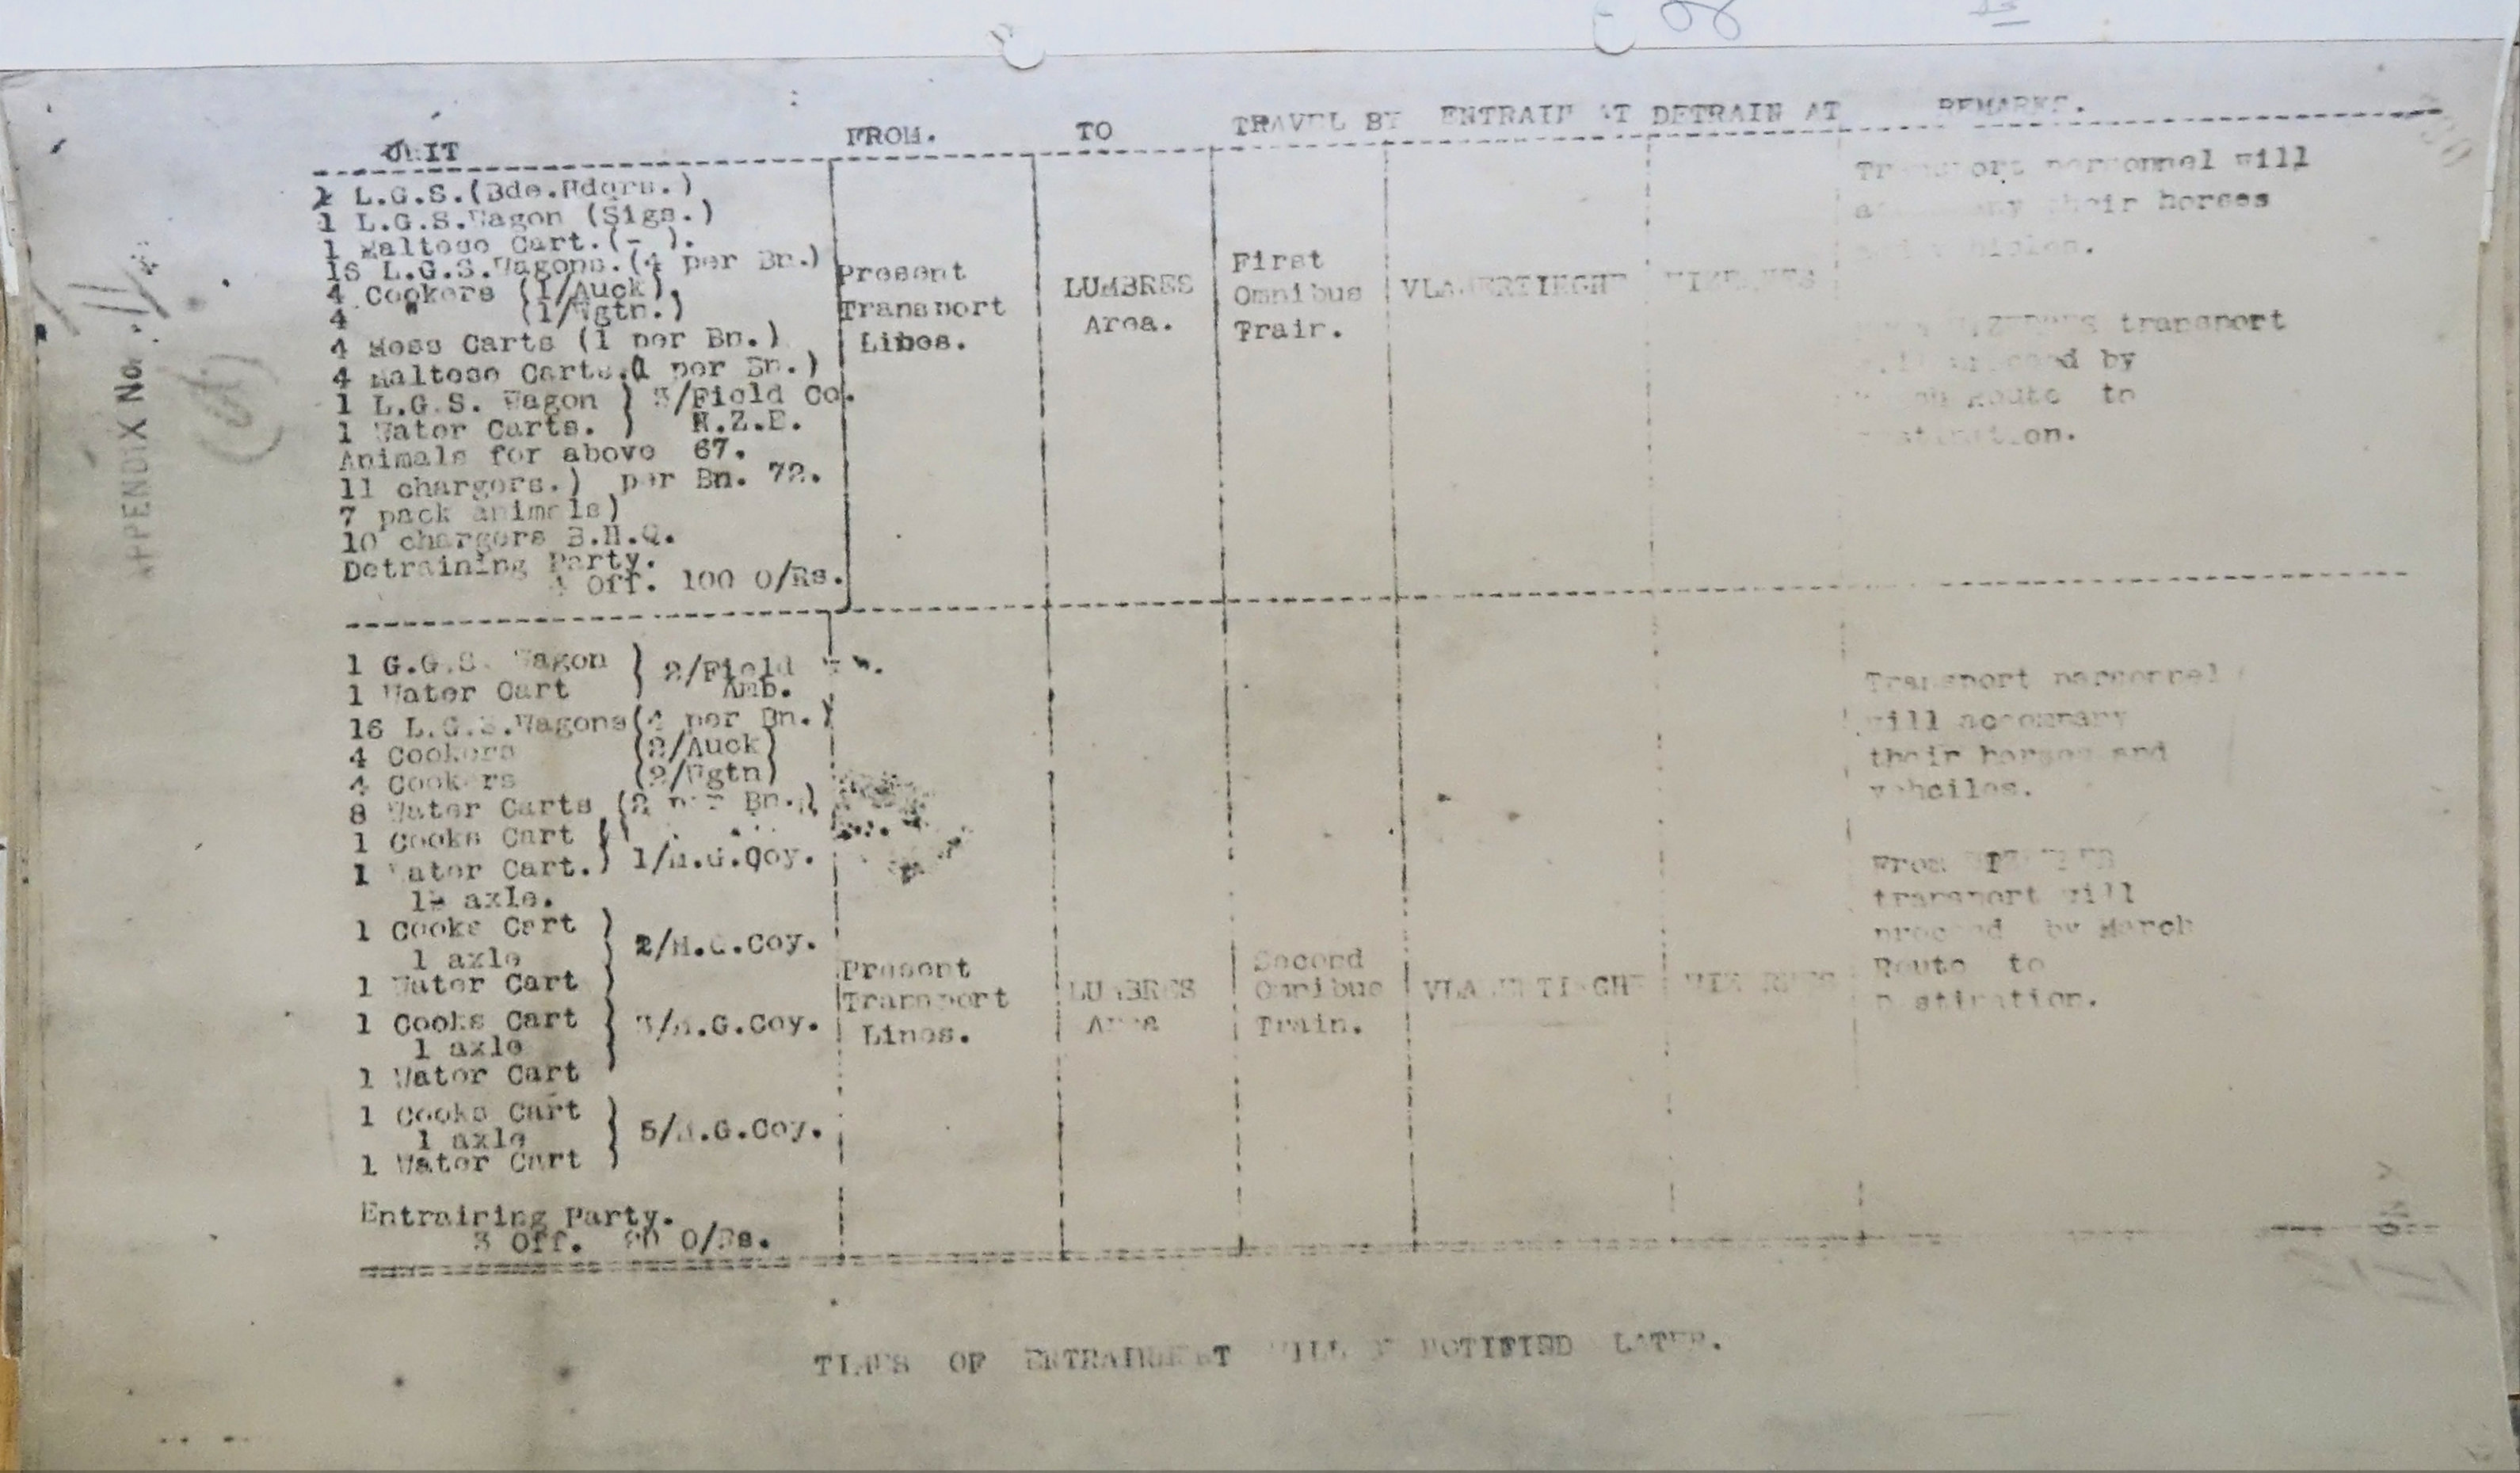 UNIT FROM. TO TRAVEL BY ENTRAIN AT DETRAIN AT REMARKS.
1 L.G.S.(Bde.Hdqrs.)
1 L.G.S.Wagon (Sigs.)
1 Maltese Cart.(- ).
16 L.G.S.Wagons.(4 per Bn.)
4 Cookers (1/Auck).
4 " (1/Wgtn.)
4 Mess Carts (1 per Bn.)
4 Maltese Carts.(1 per Bn.)
1 L.G.S. Wagon } 3/Field Co.
1 Water Carts. ) N.Z.E.
Animals for above 67.
11 chargers.) per Bn. 72.
7 pack animals)
10 chargers B.H.Q.
Detraining Party.
4 Off. 100 O/Rs.
Present
Transport
Lines.
LUMBRES
Area.
First
Omnibus
Train.
VLAMERTINGHE
WIZERNES
Transport personnel will
accompany their horses
and vehicles.
WIZERNES transport
will proceed by
March Route to
destination.
1 G.G.S. Wagon } 2/Field
1 Water Cart } Amb.
16 L.G.S.Wagons(4 per Bn.)
4 Cookers (2/Auck)
4 Cookers (2/Wgtn)
8 Water Carts (2 per Bn.)
1 Cooks Cart {
1 Water Cart.) 1/M.G.Coy.
axle.
1 Cooks Cart
1 axle } 2/M.G.Coy.
1 Water Cart
1 Cooks Cart } 3/M.G.Coy.
1 axle
1 Water Cart
1 Cooks Cart
1 axle } 5/M.G.Coy.
1 Water Cart
Entraining Party.
3 Off. O/Rs.
Present
Transport
Lines.
LUMBRES
Area
Second
Omnibus
Train.
VLAMERTINGHE
WIZERNES
Transport personnel
will accompany
their horses and
vehciles.
From WIZERNES
transport will
proceed by March
Route to
Destination.
TIMES OF ENTRAINMENT WILL BE NOTIFIED LATER.
APPENDIX No. 11